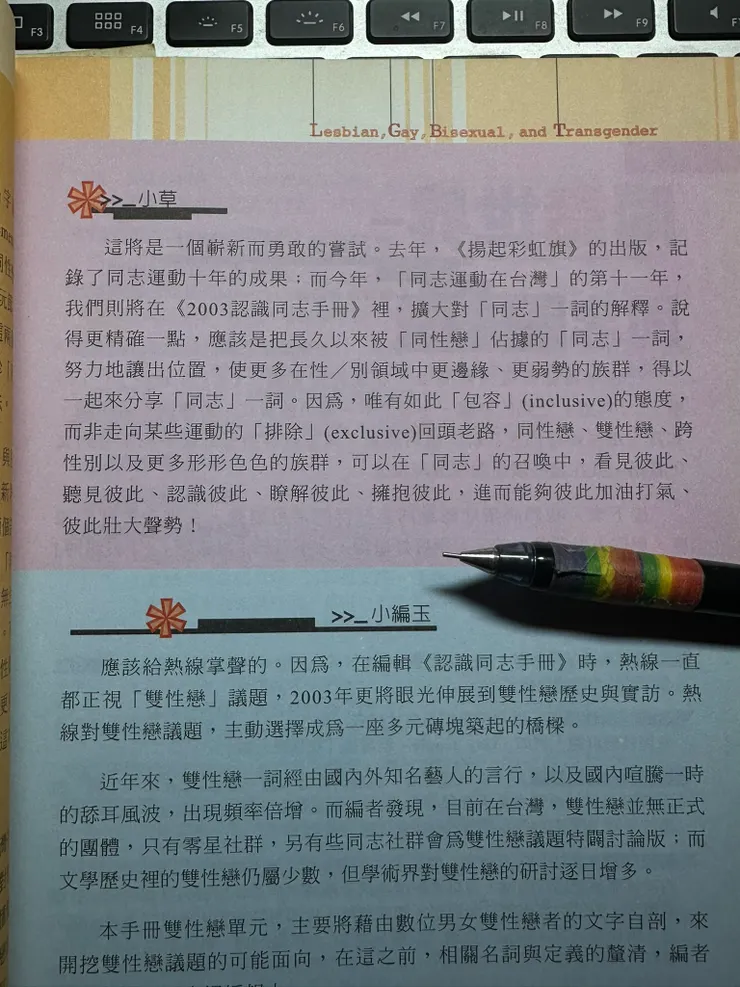 F3
F4
F5
F6
F7
F8
F9
Lesbian, Gay, Bisexual, and Transgender
>>_小草
這將是一個嶄新而勇敢的嘗試。去年，《揚起彩虹旗》的出版，記
錄了同志運動十年的成果；而今年，「同志運動在台灣」的第十一年，
我們則將在《2003認識同志手冊》裡，擴大對「同志」一詞的解釋。說
得更精確一點，應該是把長久以來被「同性戀」佔據的「同志」一詞，
努力地讓出位置，使更多在性／別領域中更邊緣、更弱勢的族群，得以
一起來分享「同志」一詞。因為，唯有如此「包容」(inclusive)的態度，
而非走向某些運動的「排除」(exclusive)回頭老路，同性戀、雙性戀、跨
性別以及更多形形色色的族群，可以在「同志」的召喚中，看見彼此、
聽見彼此、認識彼此、瞭解彼此、擁抱彼此，進而能夠彼此加油打氣、
彼此壯大聲勢！
>>_小編玉
應該給熱線掌聲的。因為，在編輯《認識同志手冊》時，熱線一直
都正視「雙性戀」議題，2003年更將眼光伸展到雙性戀歷史與實訪。熱
線對雙性戀議題，主動選擇成為一座多元磚塊築起的橋樑。
近年來，雙性戀一詞經由國內外知名藝人的言行，以及國內喧騰一時
的舔耳風波，出現頻率倍增。而編者發現，目前在台灣，雙性戀並無正式
的團體，只有零星社群，另有些同志社群會為雙性戀議題特闢討論版；而
文學歷史裡的雙性戀仍屬少數，但學術界對雙性戀的研討逐日增多。
本手冊雙性戀單元，主要將藉由數位男女雙性戀者的文字自剖，來
開挖雙性戀議題的可能面向，在這之前，相關名詞與定義的釐清，編者